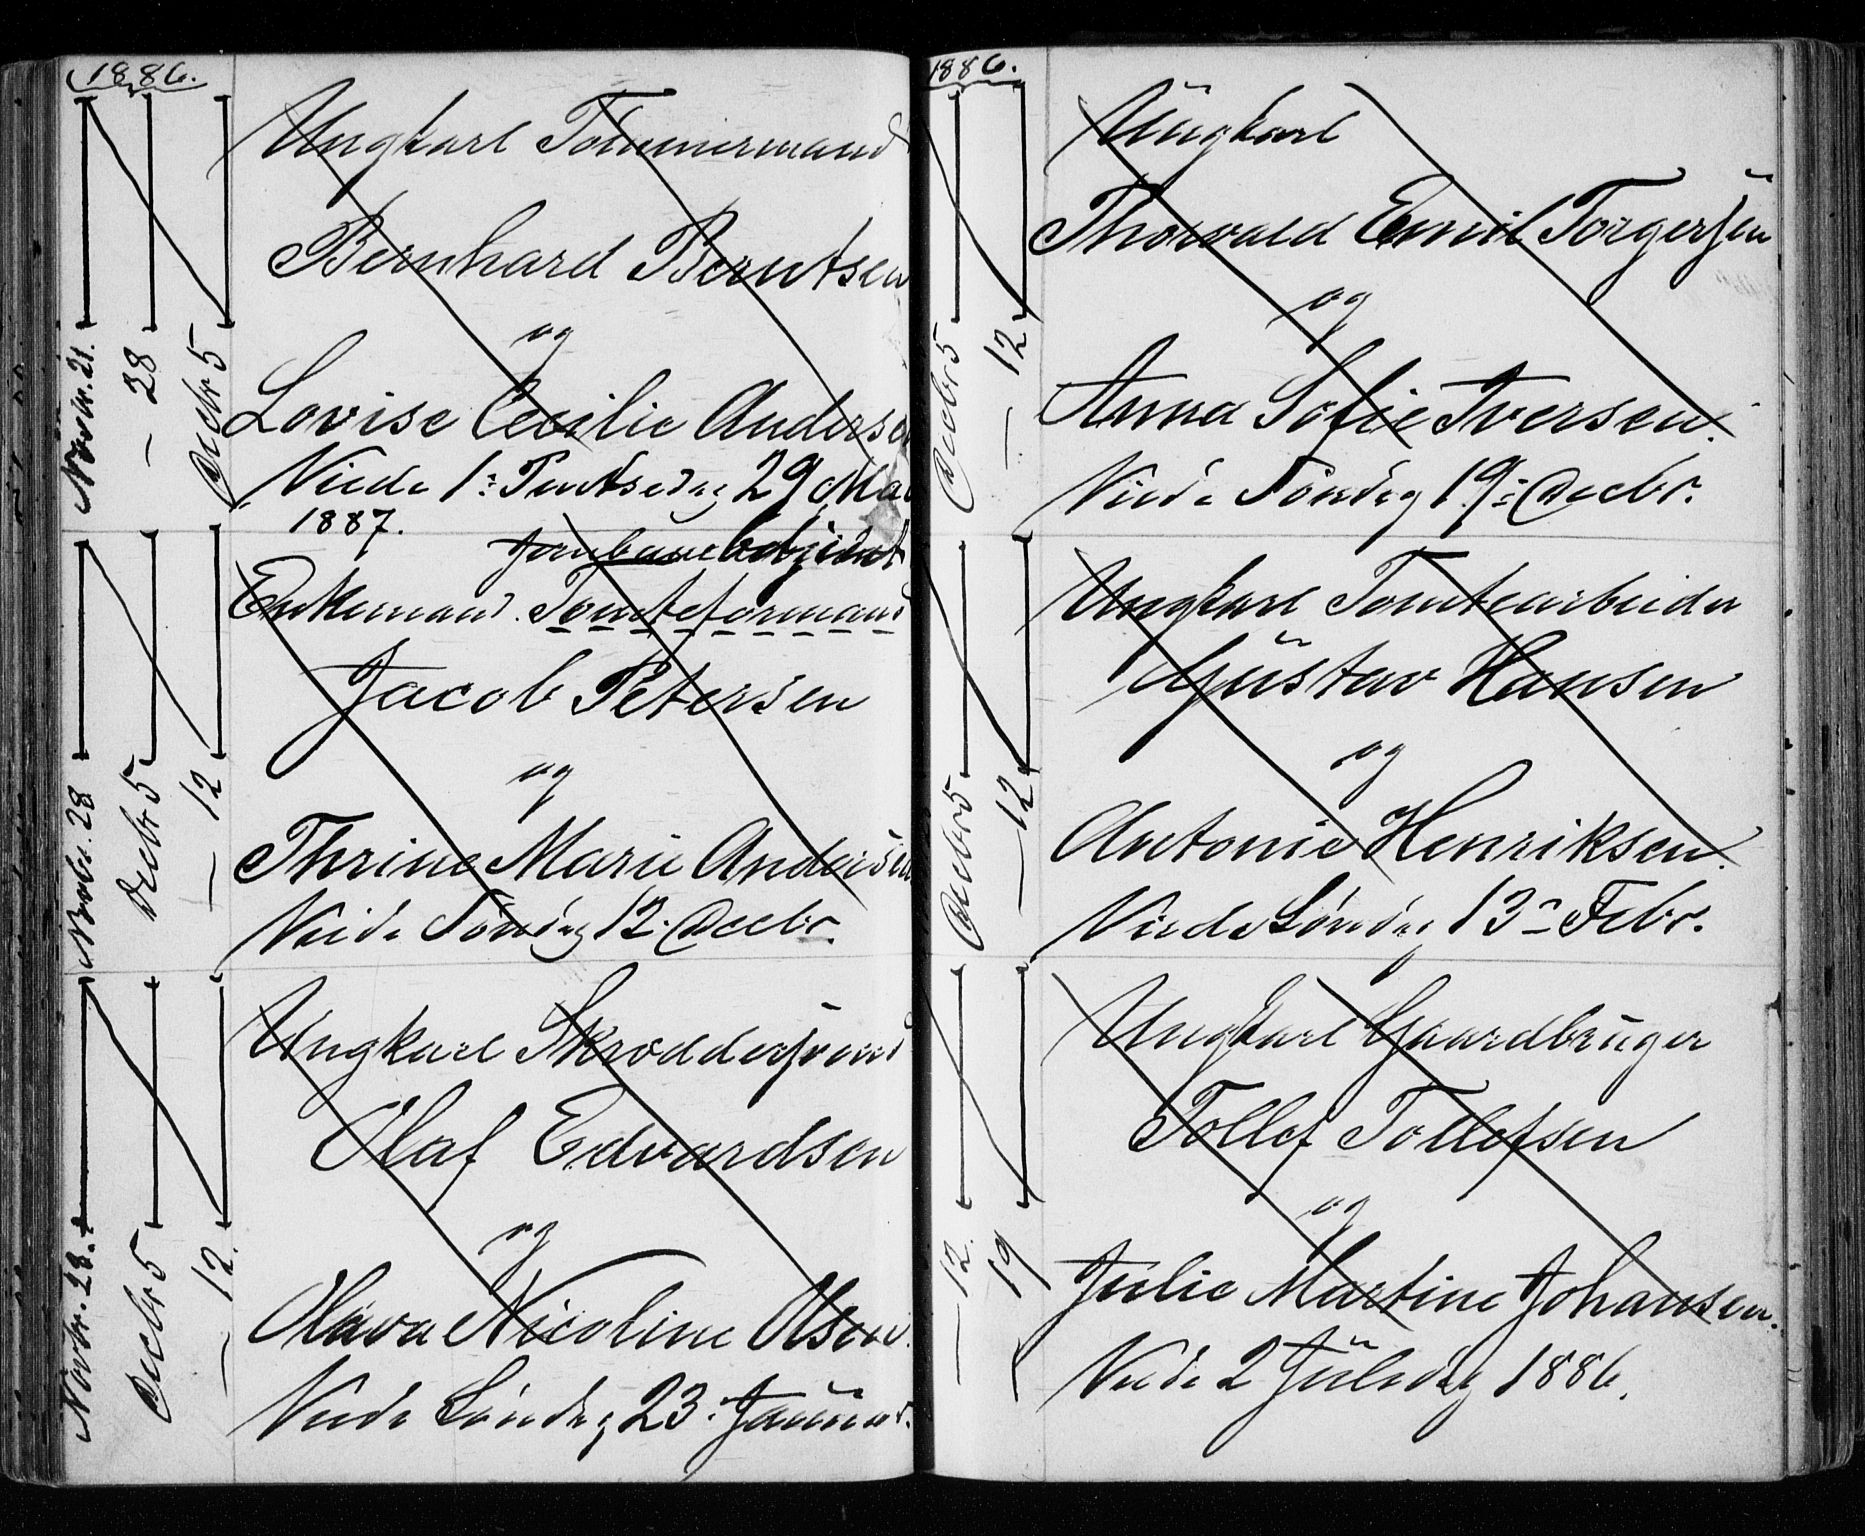 1886.
Novbr. 21.
— 28
Decbr 5
Ungkarl Tømmermand
Bernhard Berntsen
og
Lovise Cecilie Anders
Viede 1ste Pintsedag 29 Mai
1887.
Novbr. 28
Decbr 5
— 12
Enkemand. Tomteformand
Jacob Petersen
og
Thrine Marie Andersen
Viede Søndag 12. Decbr.
Novbr. 28.
Decbr 5
— 12.
Ungkarl Skræddersvend
Olaf Edvardsen
og
Olava Nicoline Olsen.
Viede Søndag 23. Januar.
1886.
Decbr 5
— 12
Ungkarl
Thorvald Emil Torgersen
og
Anna Sofie Iversen.
Viede Søndag 19de Decbr.
Decbr 5
— 12
Ungkarl Tomtearbeider
Gustav Hansen
og
Antonie Henriksen.
Viede Søndag 13de Febr.
— 12.
— 19
Ungkarl Gaardbruger
Tollef Tollefsen
og
Julie Martine Johansen.
Viede 2 Juledag 1886.